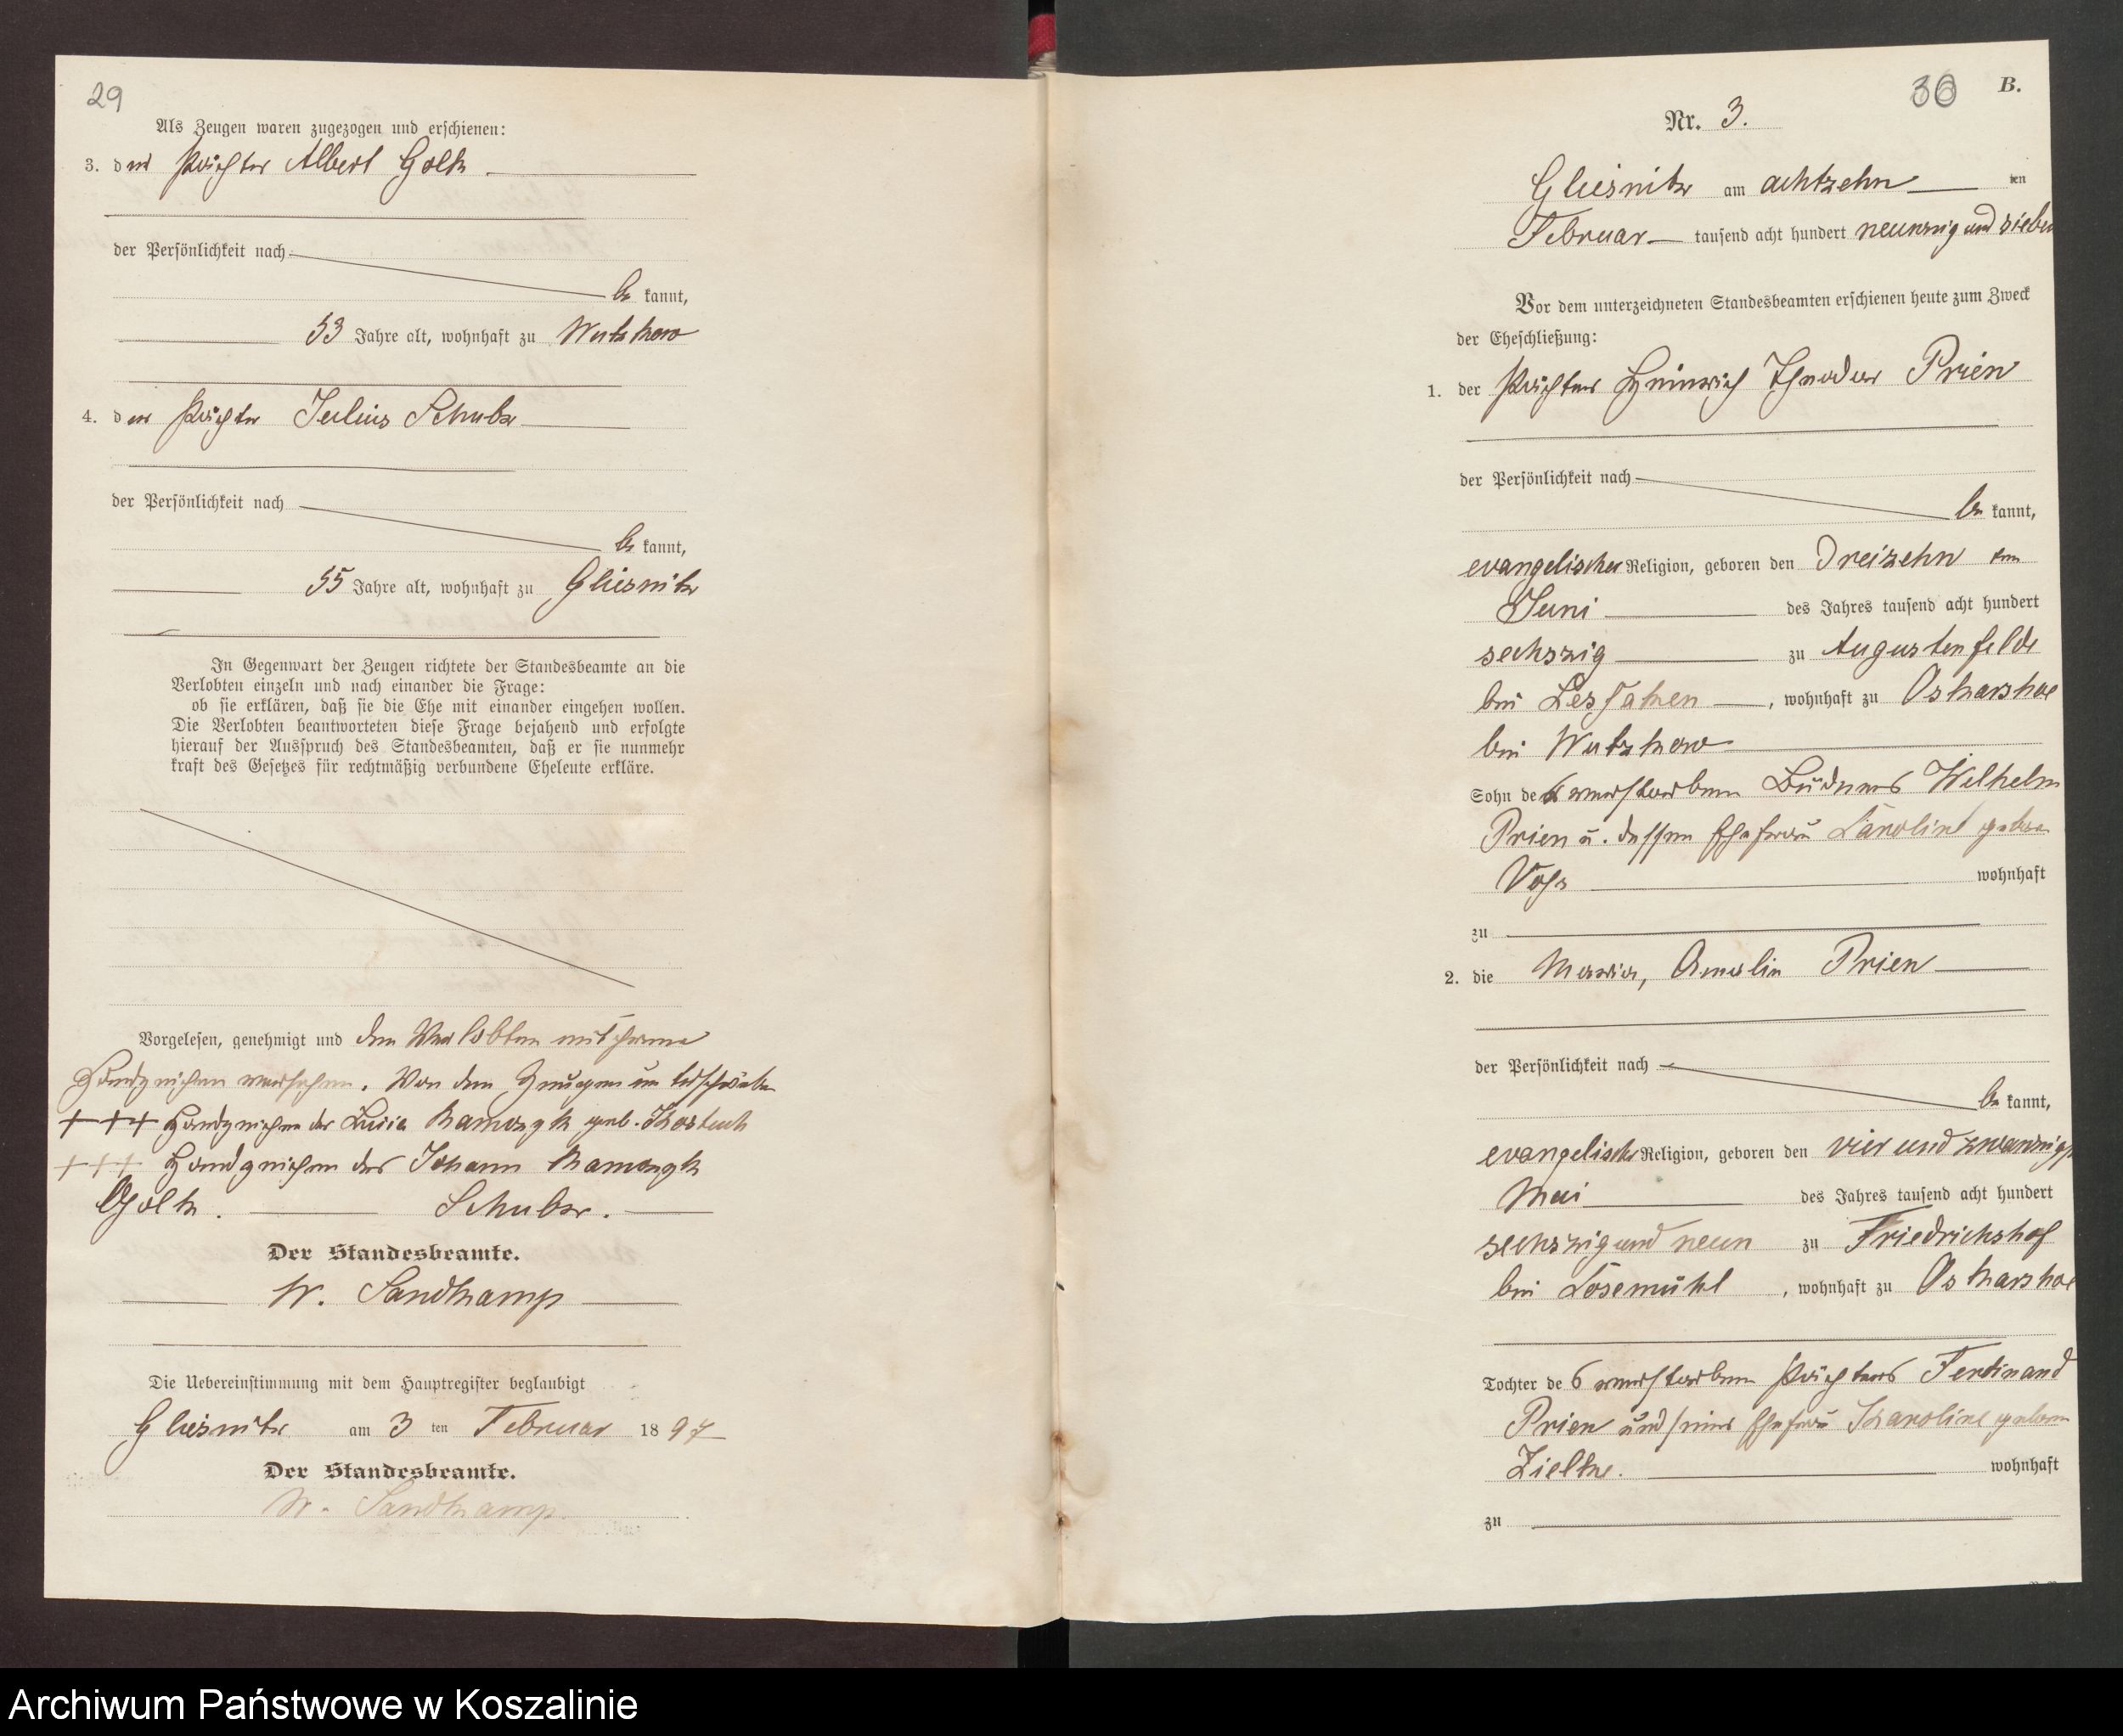 29
Als Zeugen waren zugezogen und erschienen:
3. den Pächter Albert Golk
der Persönlichkeit nach
be kannt,
53 Jahre alt, wohnhaft zu Wutzkow
4. den Pächter Julius Schulz
der Persönlichkeit nach
be kannt,
55 Jahre alt, wohnhaft zu Gliesnitz
In Gegenwart der Zeugen richtete der Standesbeamte an die
Verlobten einzeln und nach einander die Frage:
ob sie erklären, daß sie die Ehe mit einander eingehen wollen.
Die Verlobten beantworteten diese Frage bejahend und erfolgte
hierauf der Ausspruch des Standesbeamten, daß er sie nunmehr
kraft des Gesetzes für rechtmäßig verbundene Eheleute erkläre.
Vorgelesen, genehmigt und den Verlobten mit ihrem
Handzeichen versehen. Von den Zeugen unterschrieben
+++ Handzeichen der geb.
+++ Handzeichen des Johann
Golk. Schulz.
Der Standesbeamte.
W. Sandkamp
Die Uebereinstimmung mit dem Hauptregister beglaubigt
Gliesnitz am 3 ten Februar 18 97
Der Standesbeamte.
W. Sandkamp.
30
B.
Nr. 3.
Gliesnitz am achtzehn ten
Februar tausend acht hundert neunzig und sieben
Vor dem unterzeichneten Standesbeamten erschienen heute zum Zweck
der Eheschließung:
1. der Pächter Heinrich Theodor Prien
der Persönlichkeit nach
be kannt,
evangelischer Religion, geboren den Dreizehn ten
Juni des Jahres tausend acht hundert
sechszig zu Augustenfelde
bei , wohnhaft zu Oskarshof
bei Wutzkow
Sohn des verstorbenen Büdners Wilhelm
Prien u. dessen Ehefrau Caroline geboren
Voss wohnhaft
zu
2. die Maria, Amalie Prien
der Persönlichkeit nach
be kannt,
evangelischer Religion, geboren den vier und zwanzigst
Mai des Jahres tausend acht hundert
sechszig und neun zu Friedrichshof
bei Losemühl , wohnhaft zu Oskarshof
Tochter des verstorbenen Pächters Ferdinand
Prien und seiner Ehefrau Karoline geboren
Zielke. wohnhaft
zu
Archiwum Państwowe w Koszalinie